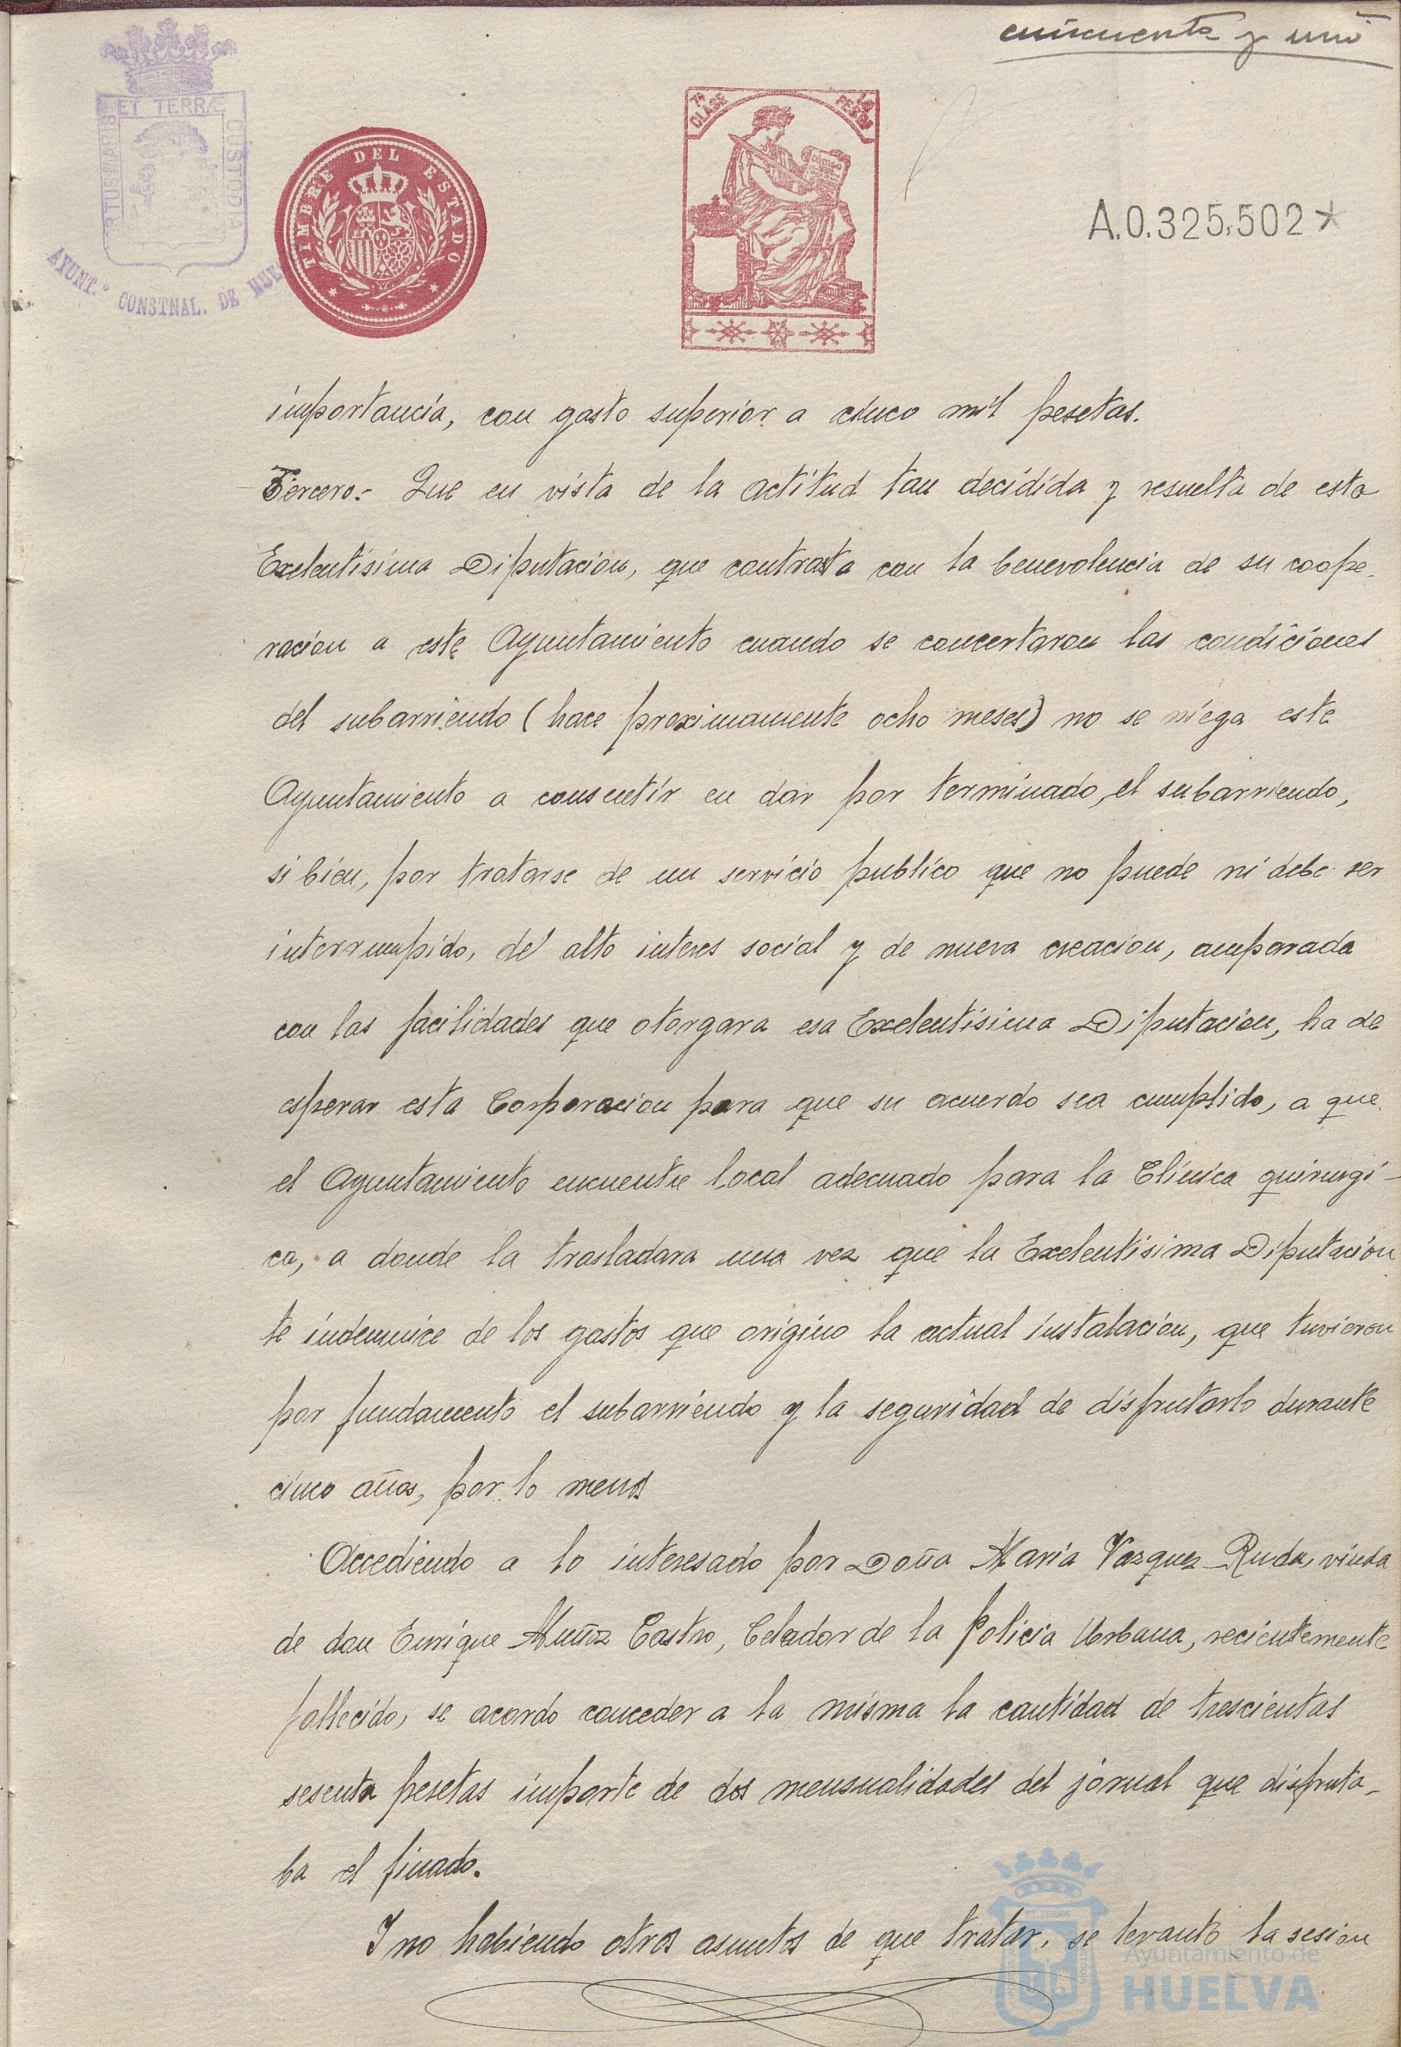 cincuenta y uno
ET TERRÆ
CUSTODIA
AYUNT.º CONSTNAL. DE HUE
TIMBRE DEL ESTADO
7ª CLASE
PESETAS
A.0.325,502*
importancia, con gasto superior a cinco mil pesetas.
Tercero.- Que en vista de la actitud tan decidida y resuelta de esta
Exelentisima Diputacion, que contrasta con la benevolencia de su coope-
racion a este Ayuntamiento cuando se concertaron las condiciones
del subarriendo (hace proximamente ocho meses) no se niega este
Ayuntamiento a consentir en dar por terminado, el subarriendo,
si bien, por tratarse de un servicio publico que no puede ni debe ser
interrumpido, del alto interes social y de nueva creacion, amparada
con las facilidades que otorgara esa Exelentisima Diputacion, ha de
esperar esta Corporacion para que su acuerdo sea cumplido, a que
el Ayuntamiento encuentre local adecuado para la Clinica quirurgi-
ca, a donde la trasladara una vez que la Exelentisima Diputacion
le indemnice de los gastos que origino la actual instalacion, que tuvieron
por fundamento el subarriendo y la seguridad de disfrutarlo durante
cinco años, por lo menos
Accediendo a lo interesado por Doña Maria Vazquez Ruda, viuda
de don Enrique Muñoz Castro, Celador de la Policia Urbana, recientemente
fallecido, se acordo conceder a la misma la cantidad de trescientas
sesenta pesetas importe de dos mensualidades del jornal que disfruta-
ba el finado.
I no habiendo otros asuntos de que tratar, se levanto la sesion
Ayuntamiento de
HUELVA